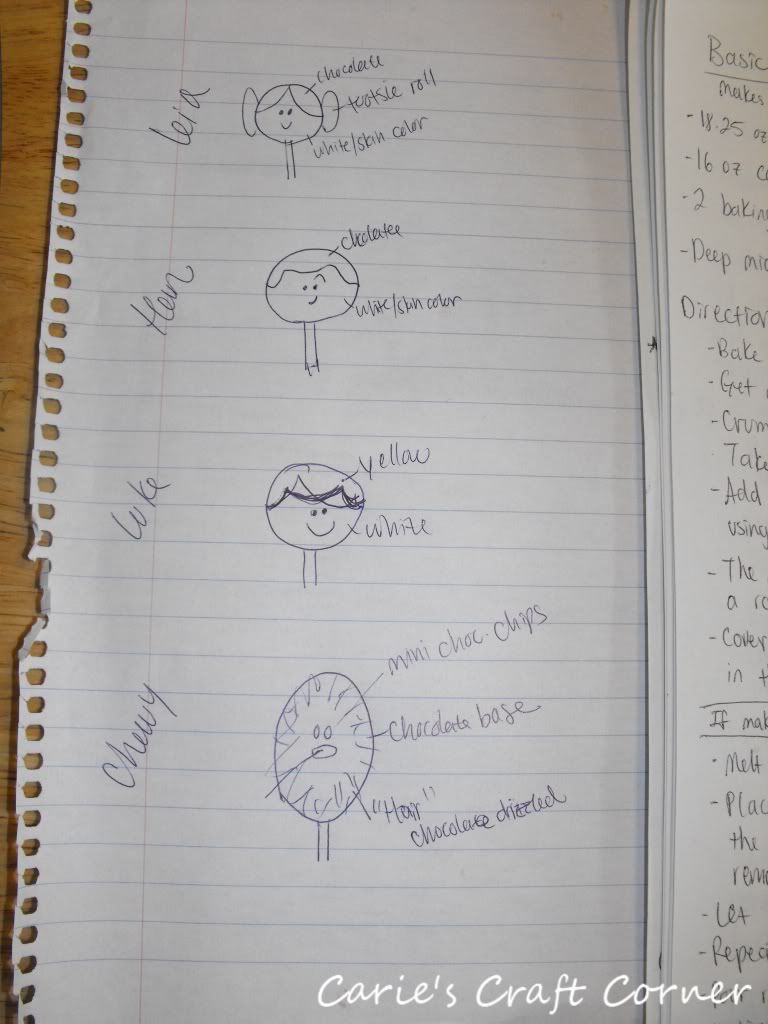 leia
chocolate
tootsie roll
white/skin color
Han
choclatee
white/skin color
Luke
yellow
white
Chewy
mini choc. chips
chocolate base
"Hair"
chocolate drizzled
Basic
makes
- 18.25 oz
- 16 oz
- 2 baking
- Deep
Direction
- Bake
- Get
- Crum
Take
- Add
using
- The
a ro
- Cover
in t
If mak
· Melt
- Plac
the
remo
- Let
- Repea
Carie's Craft Corner